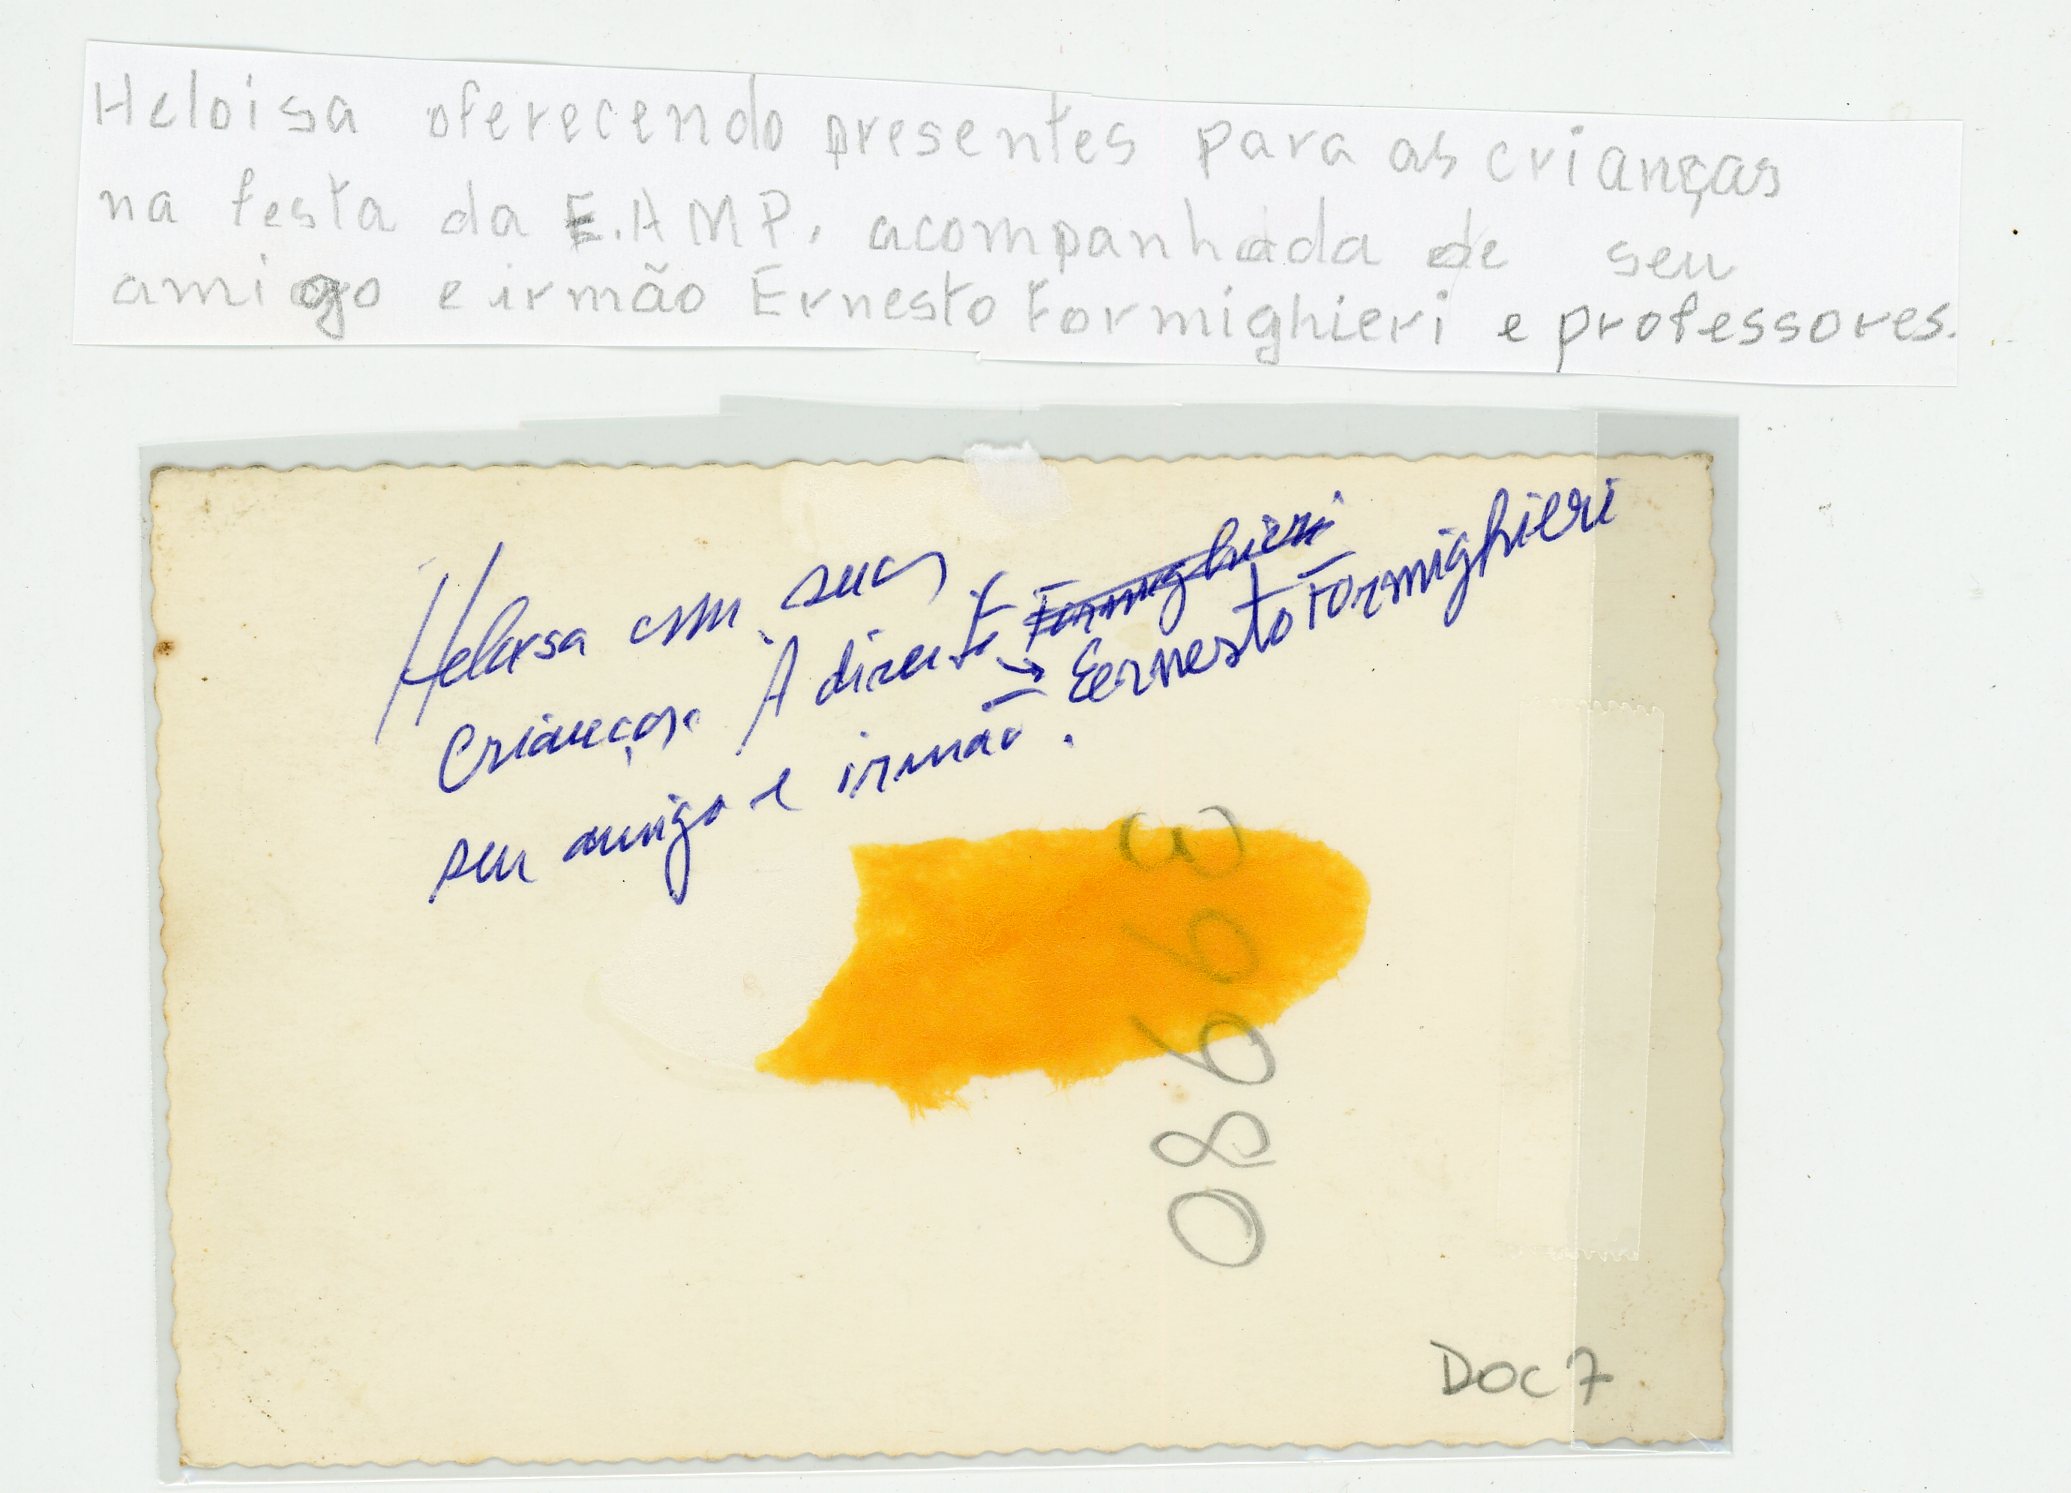 Heloisa oferecendo presentes para as crianças
na festa da E.AMP. acompanhada de seu
amigo e irmão Ernesto Formighieri e professores.
Heloisa com suas
crianças. À direita Formighieri
→ Eernesto Formighieri
seu amigo e irmão.
08663
DOC 7